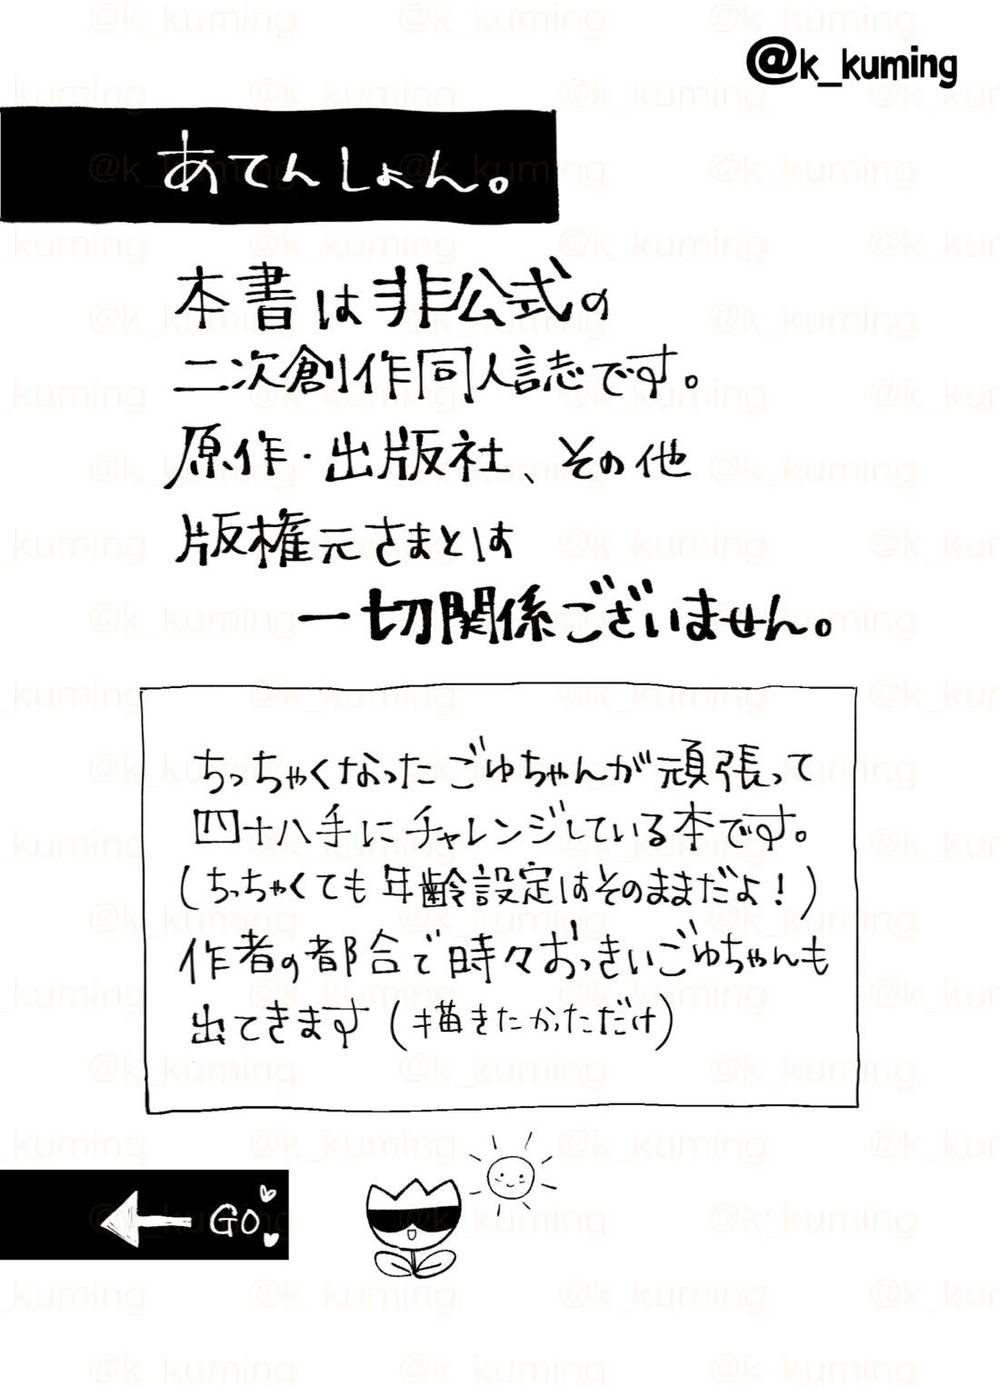 @k_kuming
あてんしょん。
本書は非公式の
二次創作同人誌です。
原作・出版社、その他
版権元さまとは
一切関係ございません。
ちっちゃくなったごゆちゃんが頑張って
四十八手にチャレンジしている本です。
(ちっちゃくても年齢設定はそのままだよ!)
作者の都合で時々おっきいごゆちゃんも
出てきます(描きたかっただけ)
GO